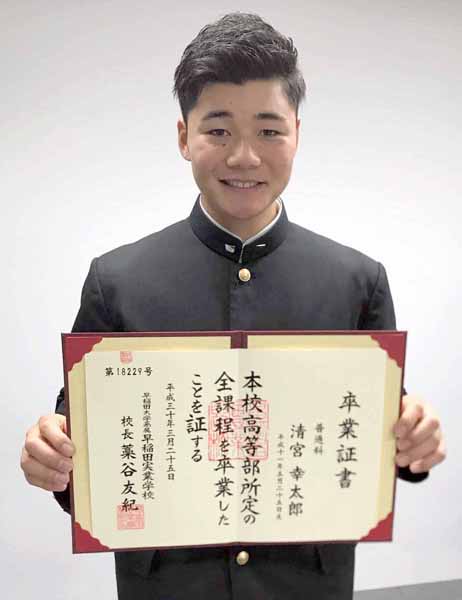 卒業証書
普通科
清宮 幸太郎
平成十一年五月二十五日生
本校高等部所定の
全課程を卒業した
ことを証する
平成三十年三月二十五日
早稲田大学系属早稲田実業学校
校長 藁谷友紀
第18229号